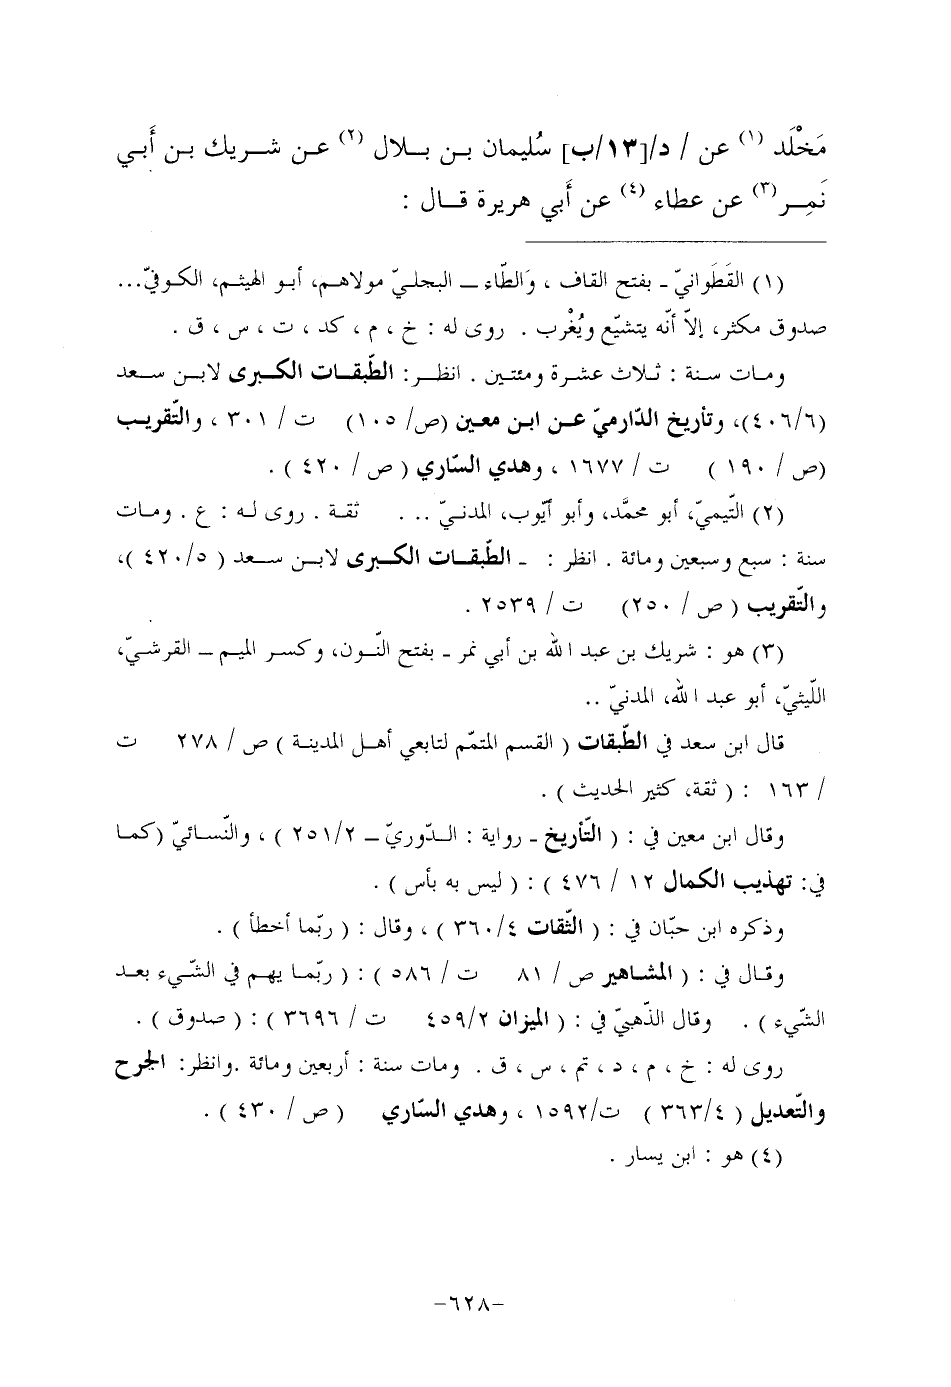 مَخْلَد (١) عن / د/[١٣/ب] سُليمان بن بــلال (٢) عـن شـريك بـن أَبـي
نَمِـر(٣) عن عطاء (٤) عن أَبي هريرة قـال :
(١) القَطَوانيّ ـ بفتح القاف ، وَالطّاء ــ البجليّ مولاهـم، أبـو الهيثـم، الكـوفيّ...
صدوق مكثر، إلاّ أنّه يتشيّع ويُغْرب . روى له : خ ، م ، كد ، ت ، س ، ق .
ومـات سـنة : ثـلاث عشـرة ومئتـين . انظـر: الطّبقـات الكـبرى لابـن سـعد
(٤٠٦/٦)، وتأريخ الدّارميّ عـن ابـن معـين (ص/ ١٠٥) ت / ٣٠١ ، والتّقريـب
(ص / ١٩٠ ) ت / ١٦٧٧ ، وهدي السّاري ( ص / ٤٢٠ ) .
(٢) التّيميّ، أبو محمَّد، وأبو أيّوب، المدنـيّ ... ثقـة . روى لـه : ع . ومـات
سنة : سبع وسبعين ومائة . انظر : ـ الطّبقـات الكـبرى لابـن سـعد ( ٤٢٠/٥ )،
والتّقريب ( ص / ٢٥٠) ت / ٢٥٣٩ .
(٣) هو : شريك بن عبد الله بن أبي نمر ـ بفتح النّـون، وكسـر الميـم ــ القرشـيّ،
اللّيثيّ، أبو عبد الله، المدنيّ ..
قال ابن سعد في الطّبقات ( القسم المتمّم لتابعي أهـل المدينـة ) ص / ٢٧٨ ت
/ ١٦٣ : ( ثقة، كثير الحديث ) .
وقال ابن معين في : ( التّأريخ ـ رواية : الـدّوريّ ــ ٢٥١/٢ ) ، والنّسـائيّ (كمـا
في: تهذيب الكمال ١٢ / ٤٧٦ ) : ( ليس به بأس ) .
وذكره ابن حبّان في : ( الثّقات ٣٦٠/٤ ) ، وقال : ( ربّما أخطأ ) .
وقـال في : ( المشاهير ص / ٨١ ت / ٥٨٦ ) : ( ربّمـا يهـم في الشّـيء بعـد
الشّيء ) . وقال الذّهبيّ في : ( الميزان ٤٥٩/٢ ت / ٣٦٩٦ ) : ( صدوق ) .
روى له : خ ، م ، د ، تم ، س ، ق . ومات سنة : أربعين ومائة .وانظر: الجرح
والتّعديل ( ٣٦٣/٤ ) ت/١٥٩٢ ، وهدي السّاري ( ص / ٤٣٠ ) .
(٤) هو : ابن يسار .
-٦٢٨-